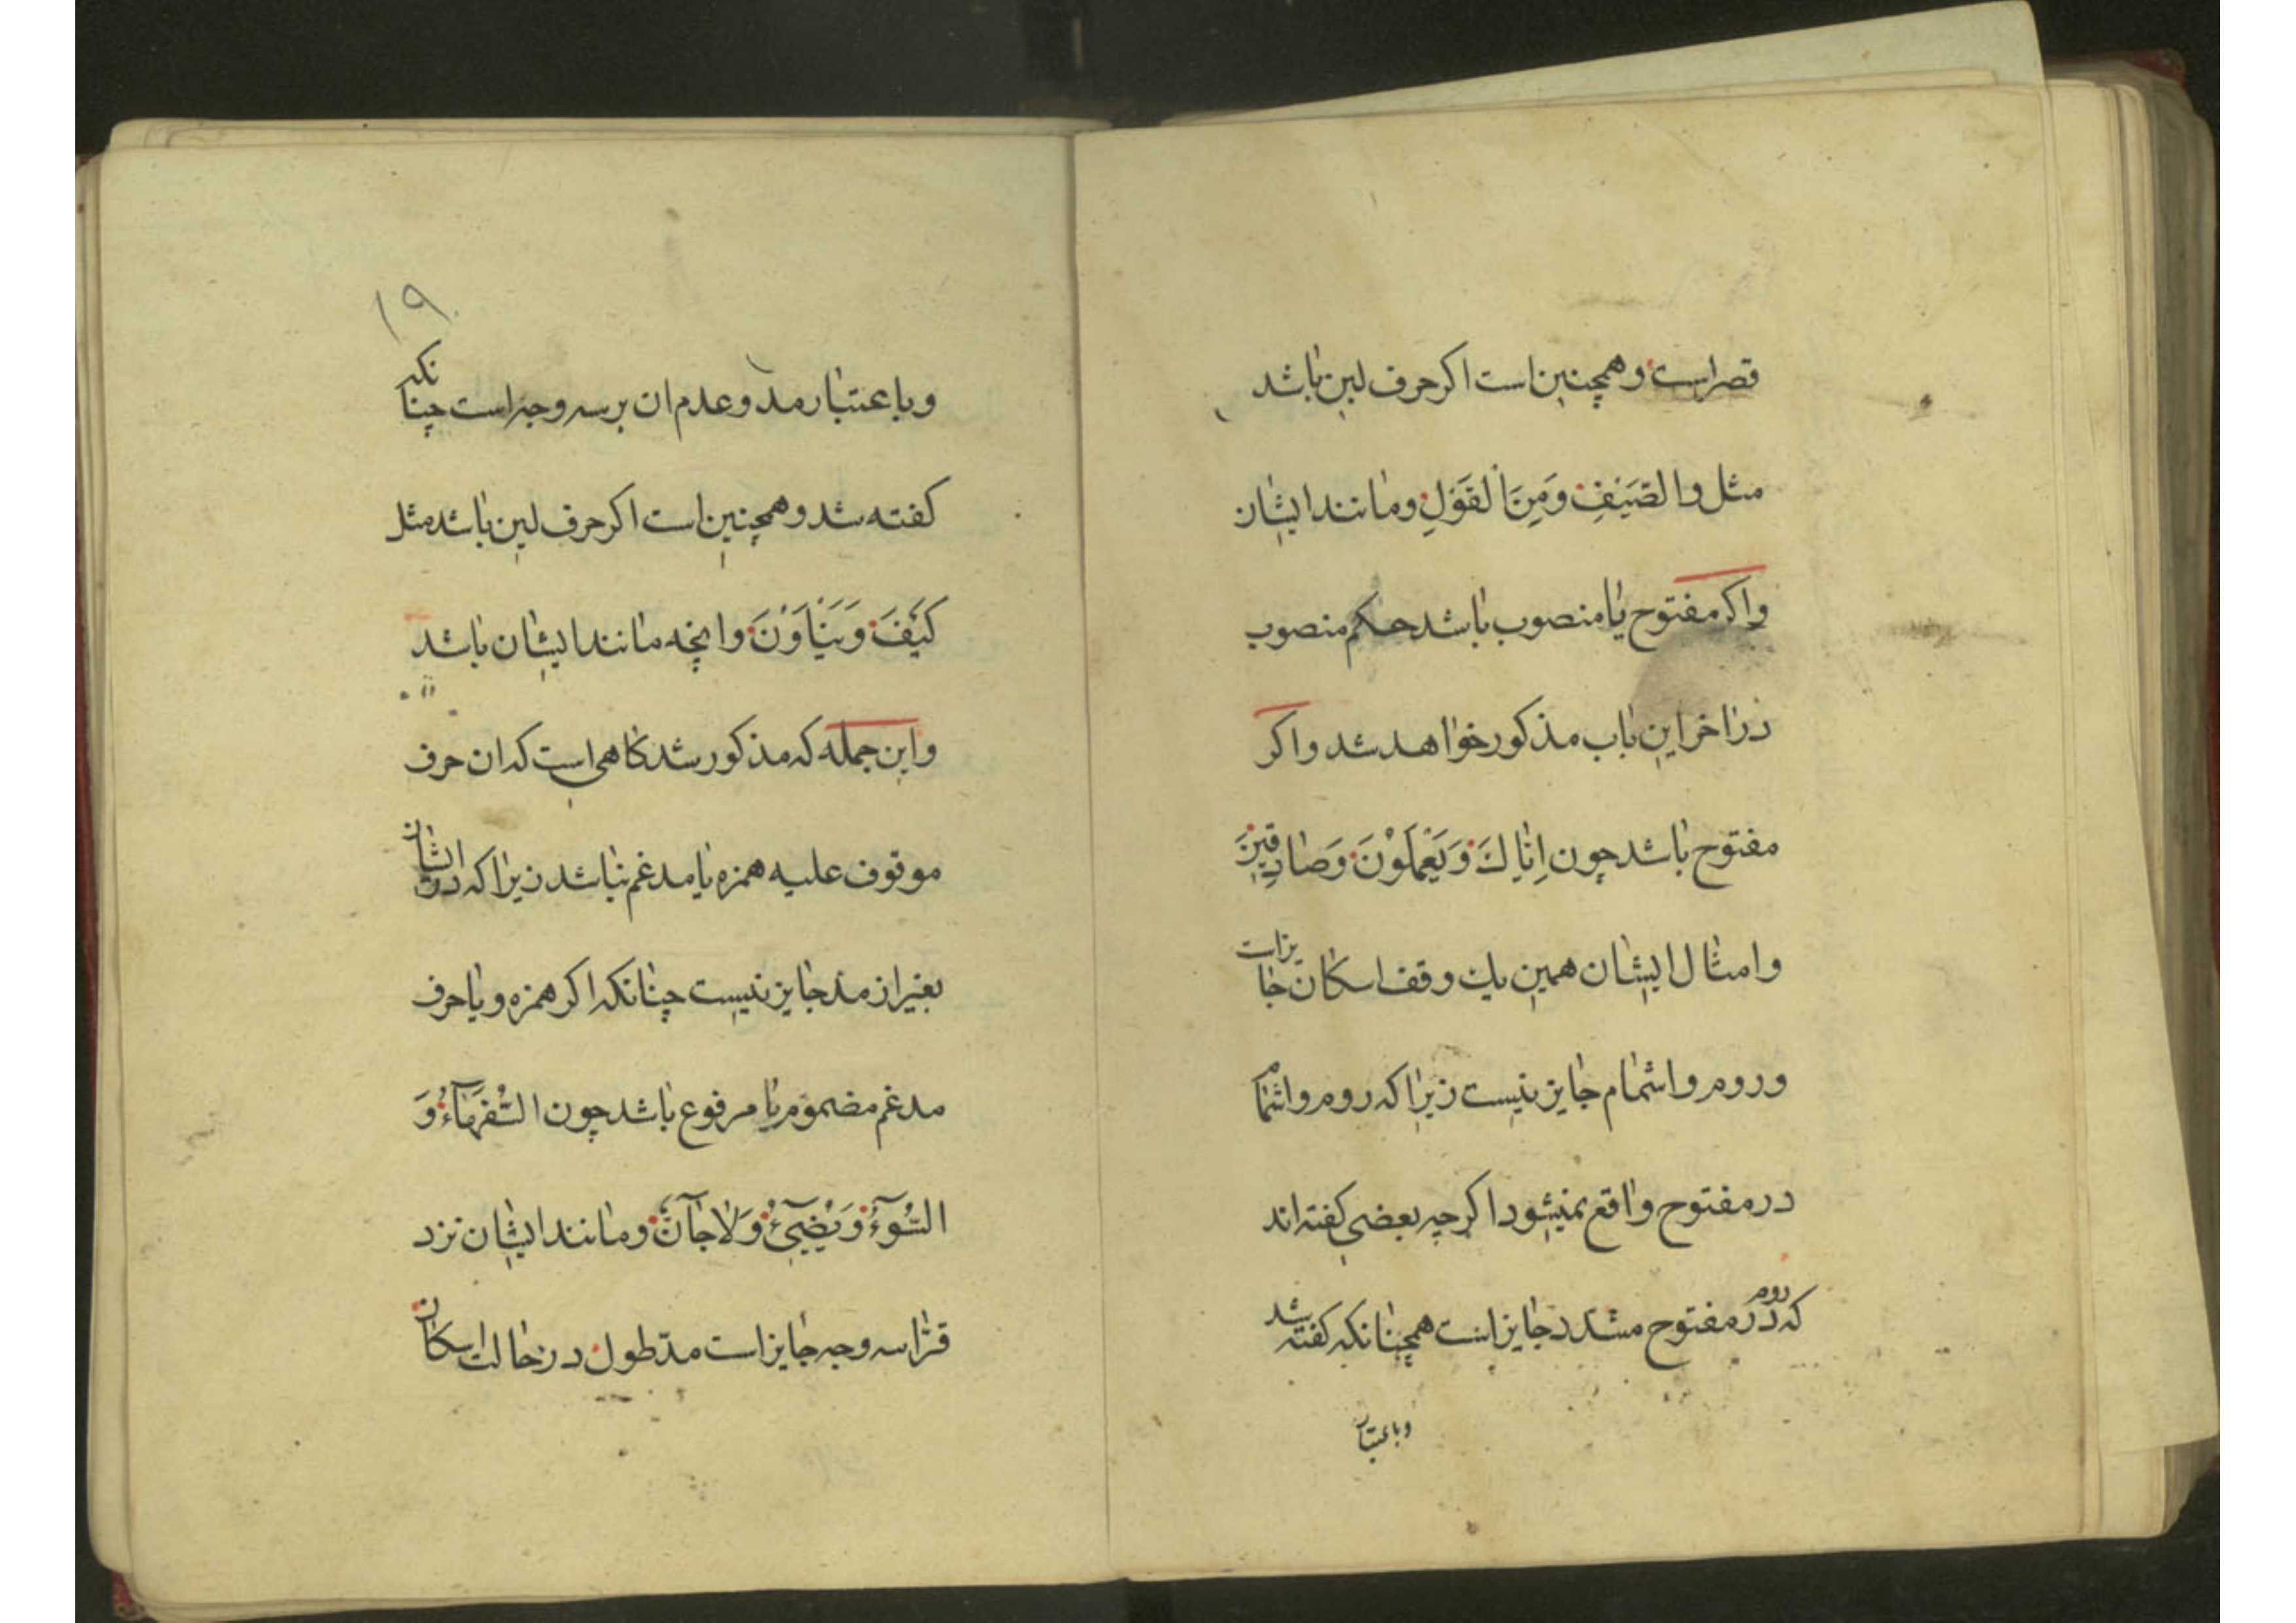 قصر است و همچنین است اکر حرف لین باشد
مثل والصَّیْفِ وَمِنَ الْقَوْلِ و مانند ایشان
واکر مفتوح یا منصوب باشد حکم منصوب
در اخر این باب مذکور خواهد شد و اکر
مفتوح باشد چون اِیّاكَ وَیَعْمَلُوْنَ وَصَادِقِیْنَ
و امثال ایشان همین یك وقف اسکان جایز است
و روم و اشمام جایز نیست زیرا که روم و اشمام
در مفتوح واقع نمیشود اکرچه بعضی کفته اند
که روم در مفتوح مشدد جایز است همچنانکه کفته شد
و باعتبار
۱۹
و باعتبار مد و عدم ان بر سه وجه است چنانکه
کفته شد و همچنین است اکر حرف لین باشد مثل
کَیْفَ وَیَنْاَوْنَ و انچه مانند ایشان باشد
و این جمله که مذکور شد کاهی است که ان حرف
موقوف علیه همزه یا مدغم نباشد زیرا که در ایشان
بغیر از مد جایز نیست چنانکه اکر همزه و یا حرف
مدغم مضموم یا مرفوع باشد چون السُّفَهَآءُ وَ
السُّوٓءُ وَیُضِیٓءُ وَلَا جَآنٌّ و مانند ایشان نزد
قرّا سه وجه جایز است مدّ طول در حالت اسکان